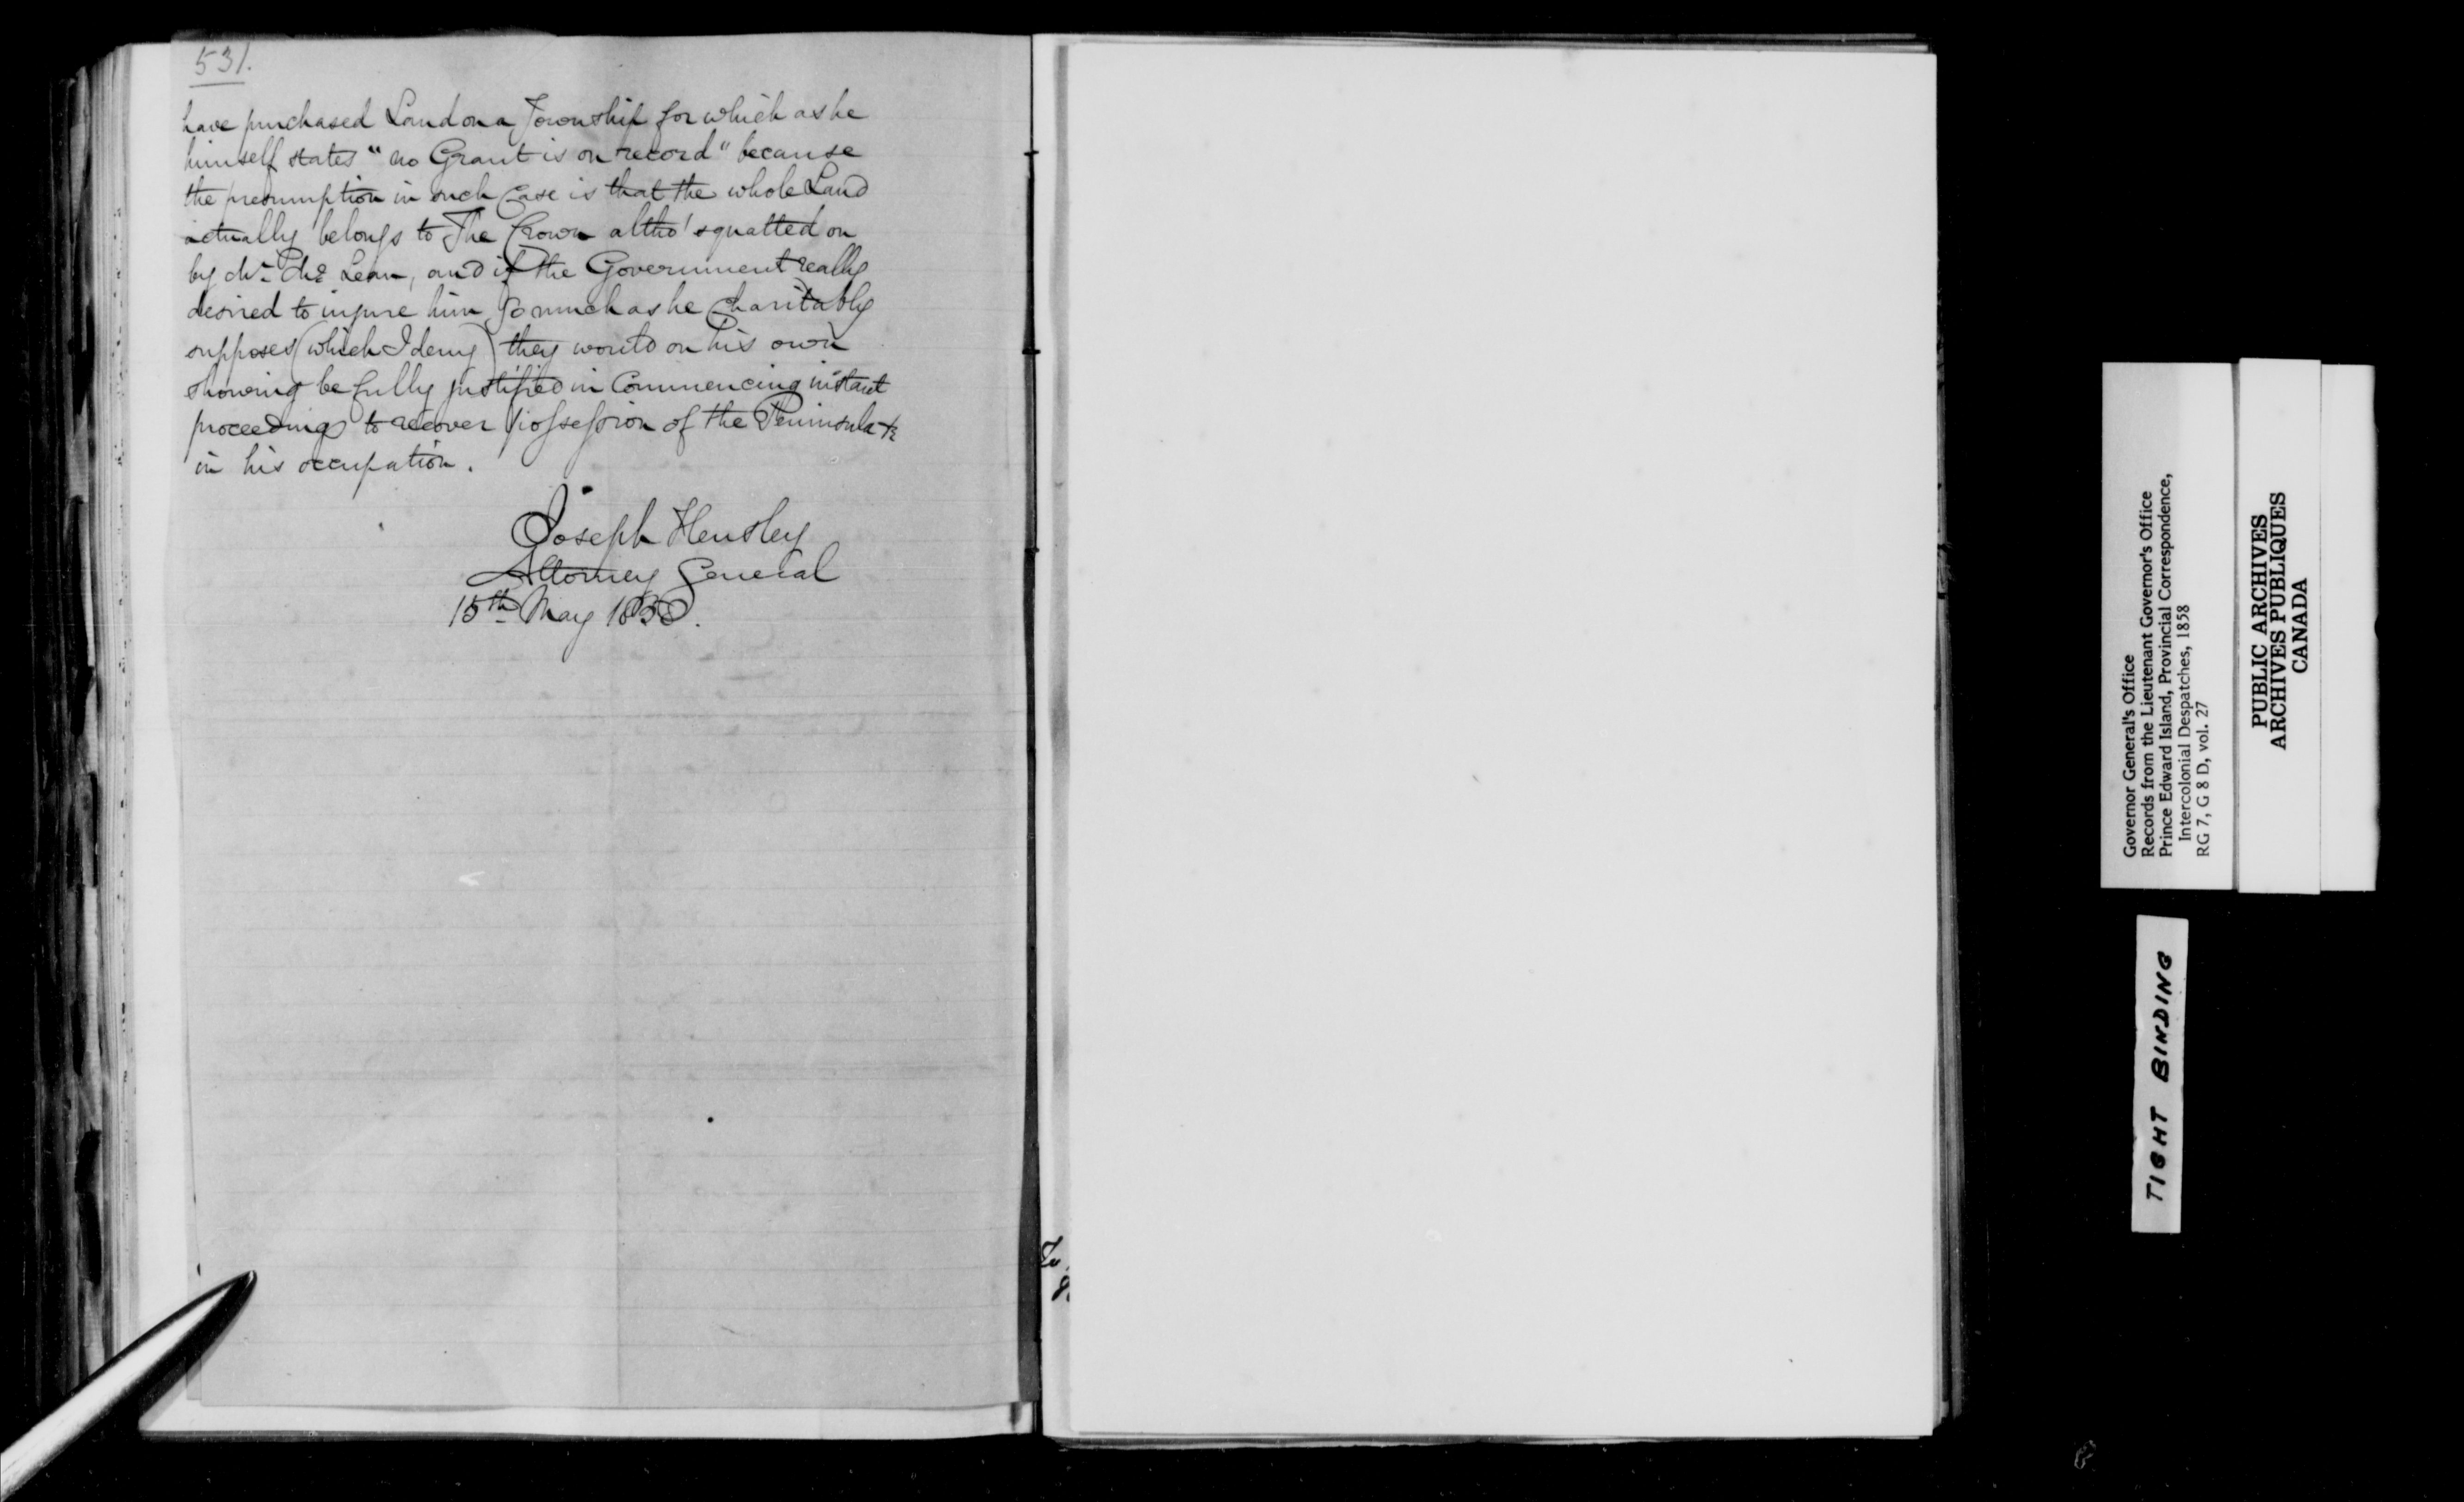 531.
have purchased Land on a Township for which as he
himself states "no Grant is on record" because
the presumption in such Case is that the whole Land
actually belongs to The Crown altho' squatted on
by Mr. Mc Lean, and if the Government really
desired to injure him so much as he charitably
supposes (which I deny) they would on his own
showing be fully justified in Commencing instant
proceedings to recover possession of the Peninsula &c
in his occupation.
Joseph Hensley
Attorney General
15th May 1858.
Governor General's Office
Records from the Lieutenant Governor's Office
Prince Edward Island, Provincial Correspondence,
Intercolonial Despatches, 1858
RG 7, G 8 D, vol. 27
PUBLIC ARCHIVES
ARCHIVES PUBLIQUES
CANADA
TIGHT BINDING